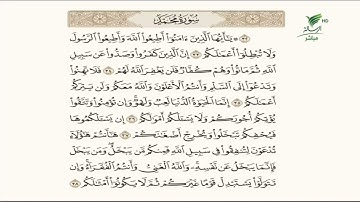 سُورَةُ مُحَمَّد
HD
مباشر
۞ يَٰٓأَيُّهَا ٱلَّذِينَ ءَامَنُوٓا۟ أَطِيعُوا۟ ٱللَّهَ وَأَطِيعُوا۟ ٱلرَّسُولَ
وَلَا تُبْطِلُوٓا۟ أَعْمَٰلَكُمْ ٣٣ إِنَّ ٱلَّذِينَ كَفَرُوا۟ وَصَدُّوا۟ عَن سَبِيلِ
ٱللَّهِ ثُمَّ مَاتُوا۟ وَهُمْ كُفَّارٌ فَلَن يَغْفِرَ ٱللَّهُ لَهُمْ ٣٤ فَلَا تَهِنُوا۟
وَتَدْعُوٓا۟ إِلَى ٱلسَّلْمِ وَأَنتُمُ ٱلْأَعْلَوْنَ وَٱللَّهُ مَعَكُمْ وَلَن يَتِرَكُمْ
أَعْمَٰلَكُمْ ٣٥ إِنَّمَا ٱلْحَيَوٰةُ ٱلدُّنْيَا لَعِبٌ وَلَهْوٌ وَإِن تُؤْمِنُوا۟ وَتَتَّقُوا۟
يُؤْتِكُمْ أُجُورَكُمْ وَلَا يَسْـَٔلْكُمْ أَمْوَٰلَكُمْ ٣٦ إِن يَسْـَٔلْكُمُوهَا
فَيُحْفِكُمْ تَبْخَلُوا۟ وَيُخْرِجْ أَضْغَٰنَكُمْ ٣٧ هَٰٓأَنتُمْ هَٰٓؤُلَآءِ
تُدْعَوْنَ لِتُنفِقُوا۟ فِى سَبِيلِ ٱللَّهِ فَمِنكُم مَّن يَبْخَلُ وَمَن يَبْخَلْ
فَإِنَّمَا يَبْخَلُ عَن نَّفْسِهِۦ وَٱللَّهُ ٱلْغَنِىُّ وَأَنتُمُ ٱلْفُقَرَآءُ وَإِن
تَتَوَلَّوْا۟ يَسْتَبْدِلْ قَوْمًا غَيْرَكُمْ ثُمَّ لَا يَكُونُوٓا۟ أَمْثَٰلَكُم ٣٨